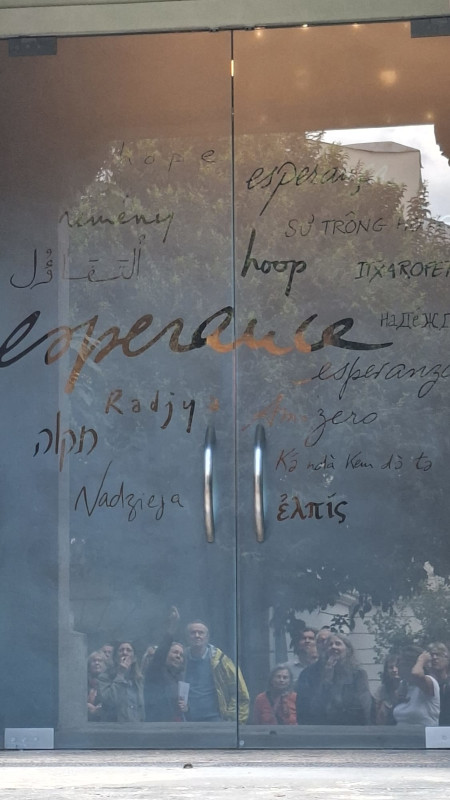 hope
esperanz
remény
SỰ TRÔNG
التفاؤل
hoop
ITXAROPE
esperance
НаДЕЖД
esperanza
Radjy
zero
תקוה
Nadzieja
ἐλπίς